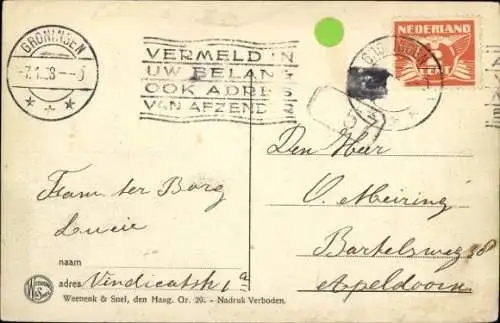 GRONINGEN
VERMELD IN
UW BELANG
OOK ADRES
VAN AFZENDER
NEDERLAND
CENT
Den Heer
O. Meiring
Bartelsweg
Apeldoorn
Fam. ter Borg
Lucie
naam
adres Vindicatstr 1a
Weenenk & Snel, den Haag. Gr. 20. - Nadruk Verboden.